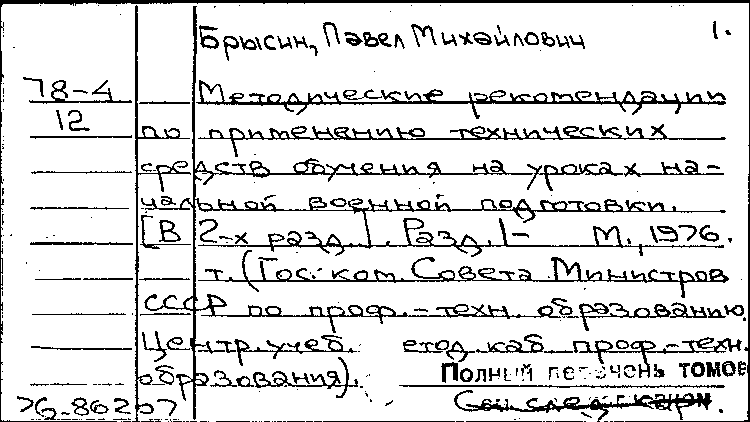 Брысин, Павел Михайлович 1.
78-4 Методические рекомендации
12 по применению технических
средств обучения на уроках на-
чальной военной подготовки.
[В 2-х разд.]. Разд. 1- М., 1976.
т. (Гос. ком. Совета Министров
СССР по проф.-техн. образованию.
Центр. учеб. етод. каб. проф.-техн.
образования).
Полный перечень томов
76-86207 См. след. карт.